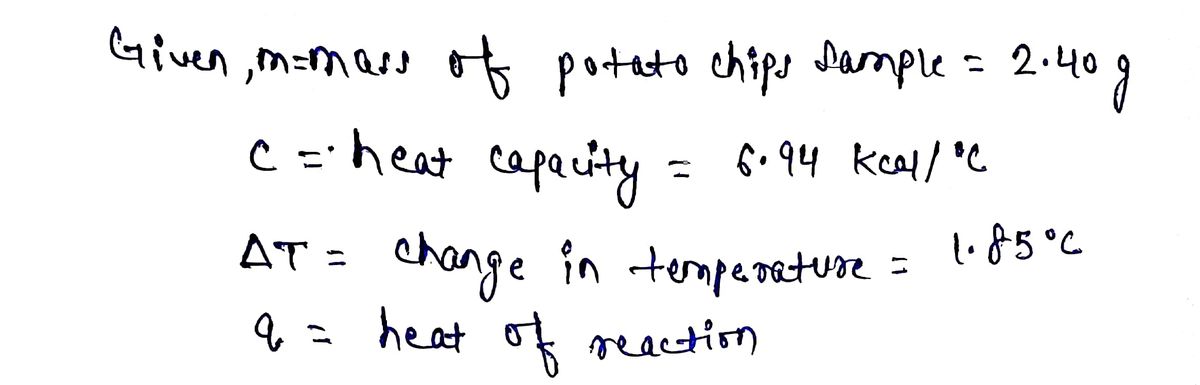 Given, m=mass of potato chips sample = 2.40 g
C = heat capacity = 6.94 Kcal/°C
ΔT = change in temperature = 1.85°C
q = heat of reaction